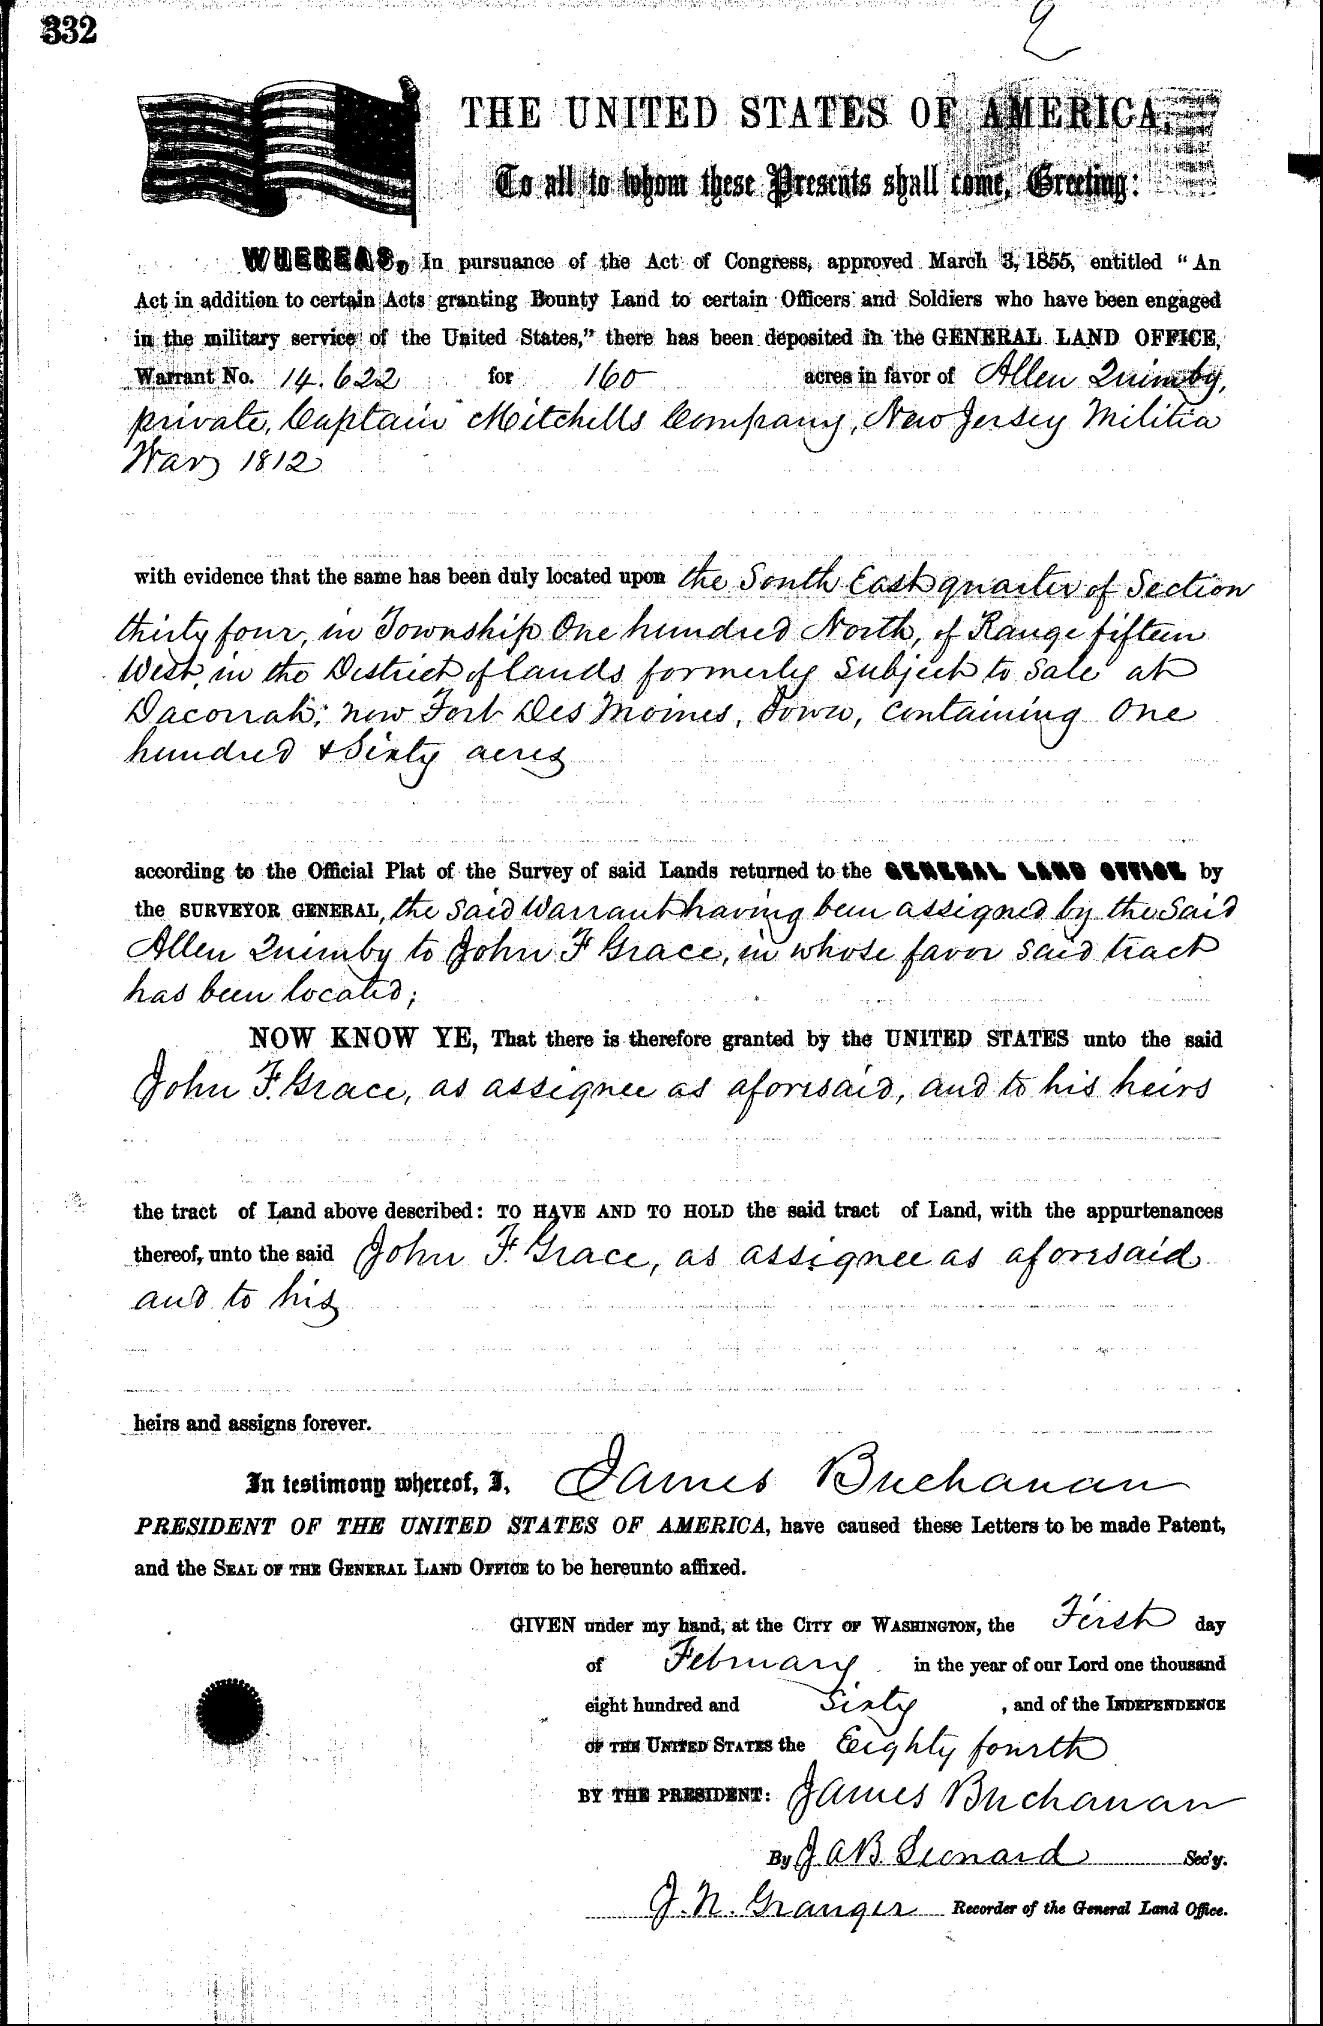 332
THE UNITED STATES OF AMERICA,
To all to whom these Presents shall come, Greeting:
WHEREAS, In pursuance of the Act of Congress, approved March 3, 1855, entitled "An
Act in addition to certain Acts granting Bounty Land to certain Officers and Soldiers who have been engaged
in the military service of the United States," there has been deposited in the GENERAL LAND OFFICE,
Warrant No. 14.622 for 160 acres in favor of Allen Quimby,
private, Captain Mitchells Company, New Jersey Militia
War 1812
with evidence that the same has been duly located upon the South East quarter of Section
thirty four, in Township One hundred North, of Range fifteen
West, in the District of lands formerly subject to sale at
Dacorrah; now Fort Des Moines, Iowa, containing One
hundred & Sixty acres
according to the Official Plat of the Survey of said Lands returned to the GENERAL LAND OFFICE by
the SURVEYOR GENERAL, the said Warrant having been assigned by the said
Allen Quimby to John F Grace, in whose favor said tract
has been located;
NOW KNOW YE, That there is therefore granted by the UNITED STATES unto the said
John F. Grace, as assignee as aforesaid, and to his heirs
the tract of Land above described: TO HAVE AND TO HOLD the said tract of Land, with the appurtenances
thereof, unto the said John F. Grace, as assignee as aforesaid
and to his
heirs and assigns forever.
In testimony whereof, I, James Buchanan
PRESIDENT OF THE UNITED STATES OF AMERICA, have caused these Letters to be made Patent,
and the SEAL OF THE GENERAL LAND OFFICE to be hereunto affixed.
GIVEN under my hand, at the CITY OF WASHINGTON, the First day
of February in the year of our Lord one thousand
eight hundred and Sixty, and of the INDEPENDENCE
OF THE UNITED STATES the Eighty fourth
BY THE PRESIDENT: James Buchanan
By J. A B. Leonard Sec'y.
J. N. Granger Recorder of the General Land Office.